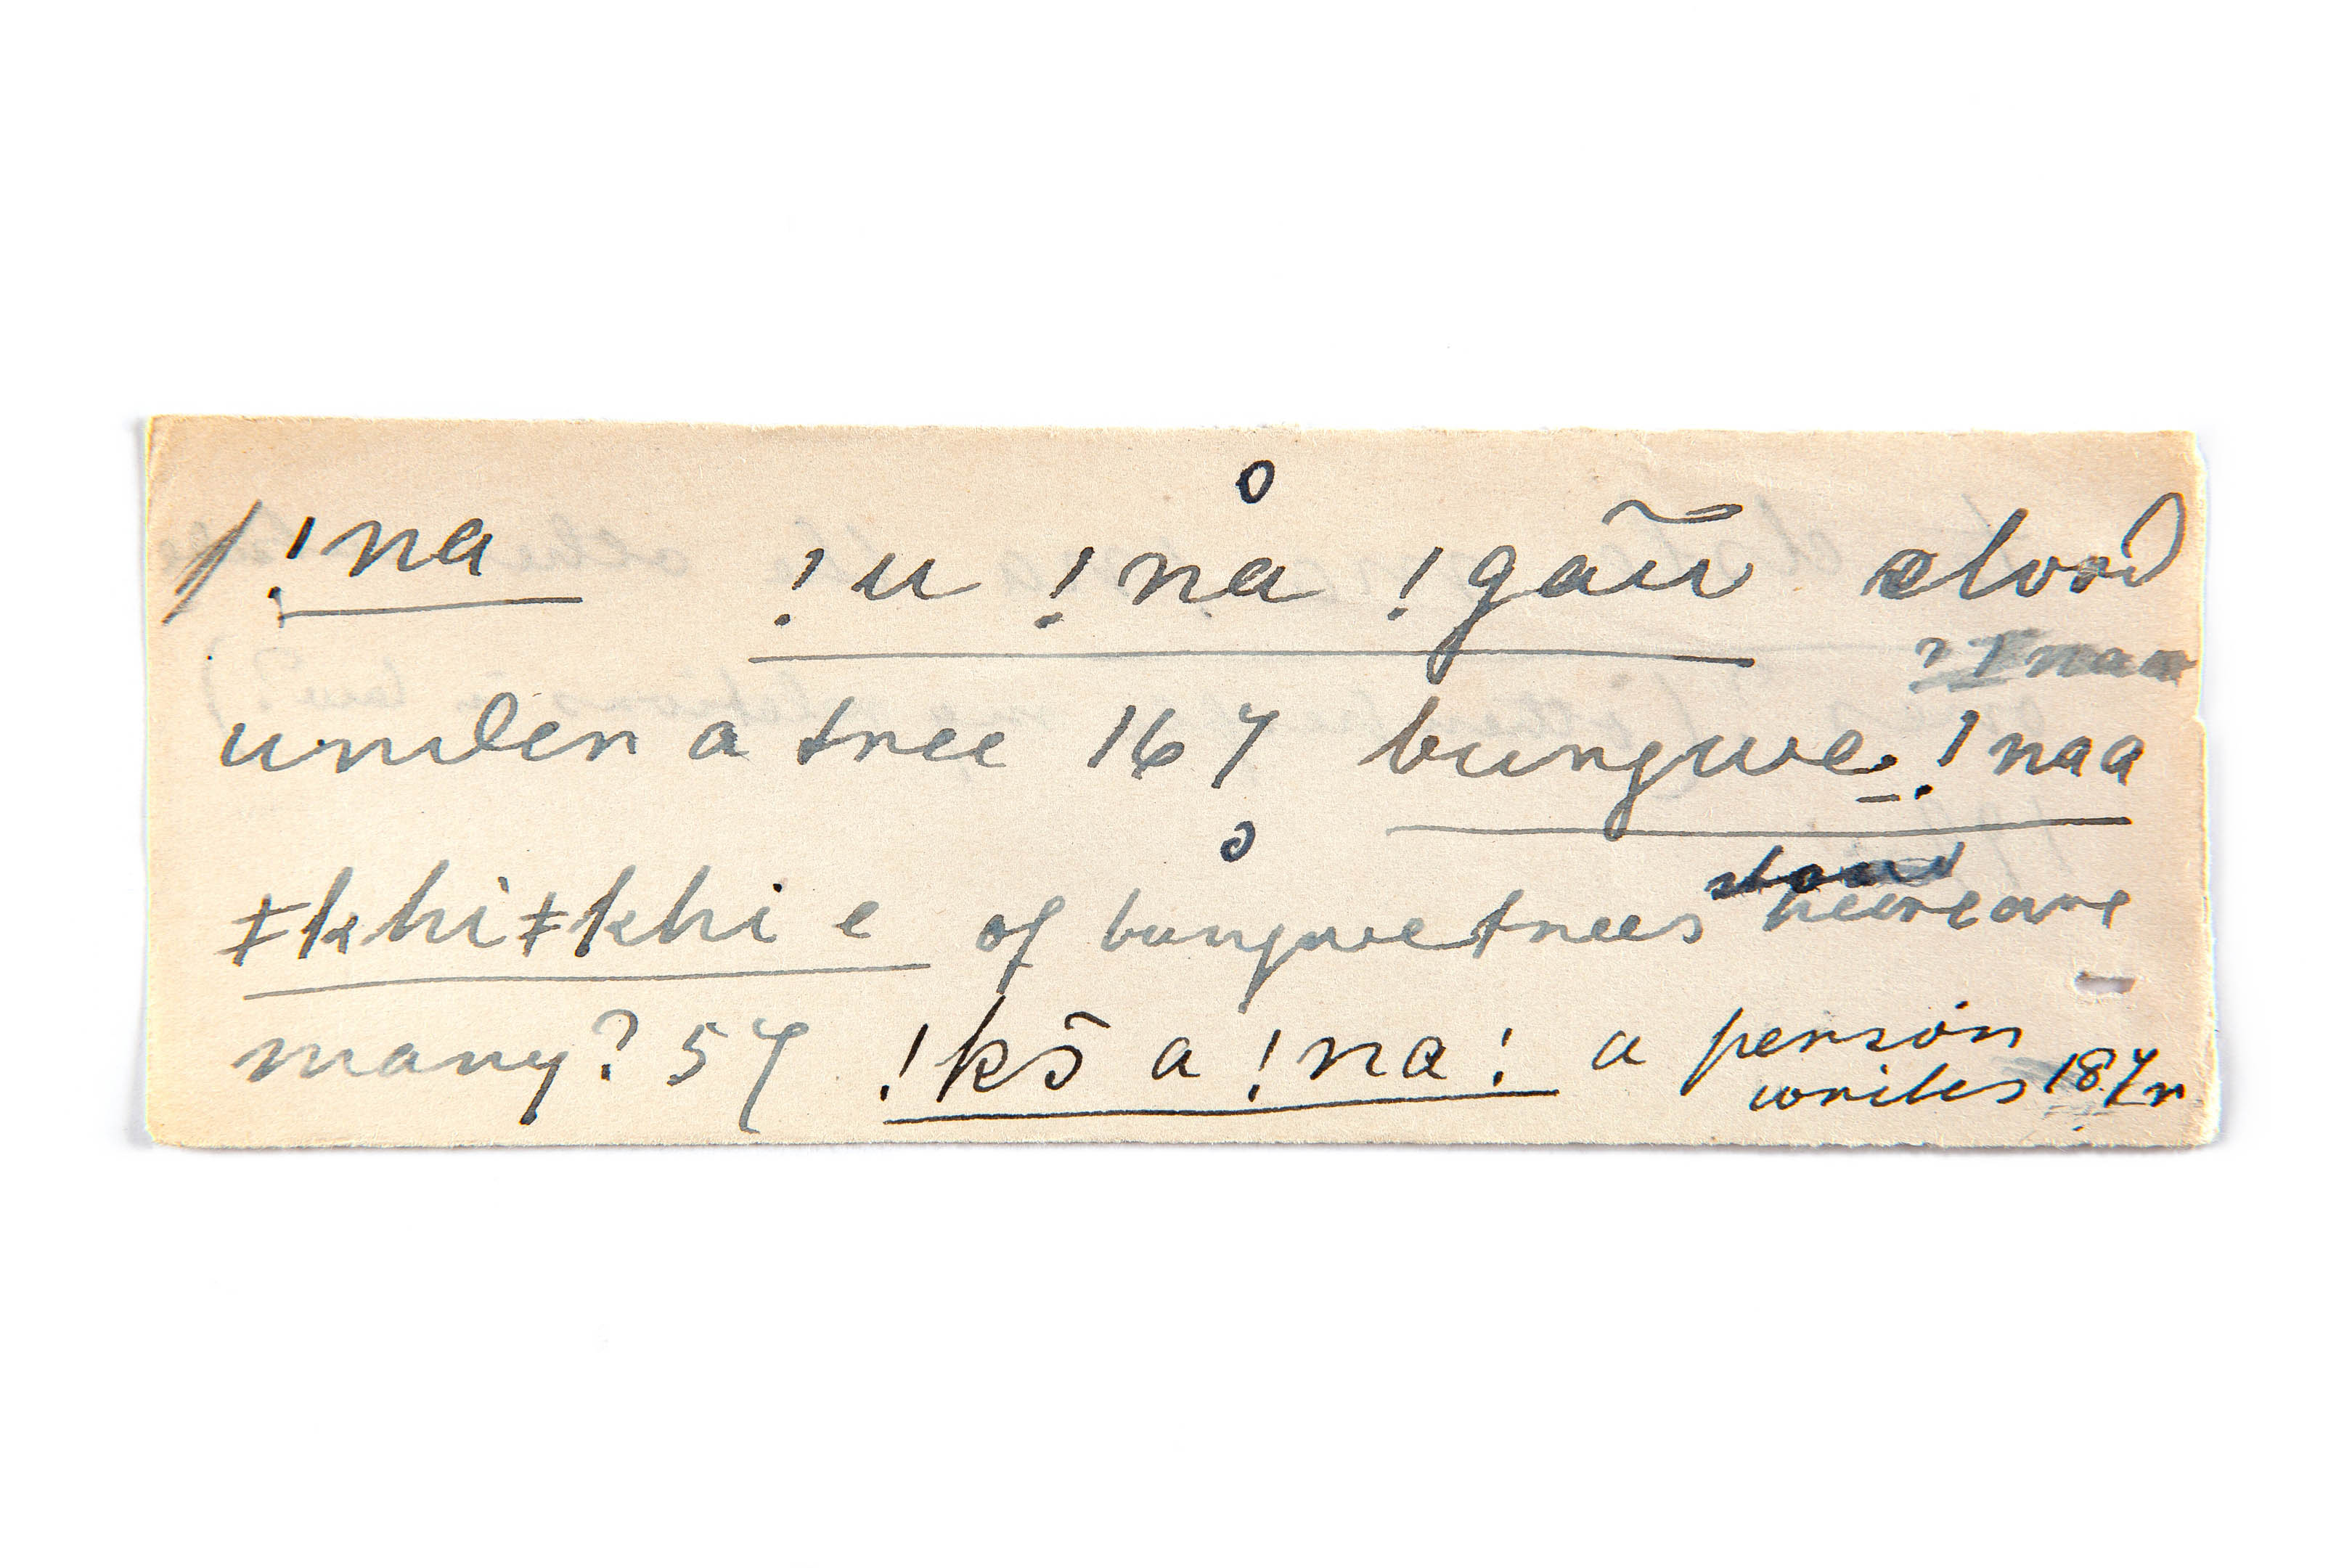 !na !u !na !gaũ stood
? !naa
under a tree 167 bungwe !naa
stand
ǂkhiǂkhi e of bungwe trees here are
many? 57 !kõ a !na: a person
writes 187r